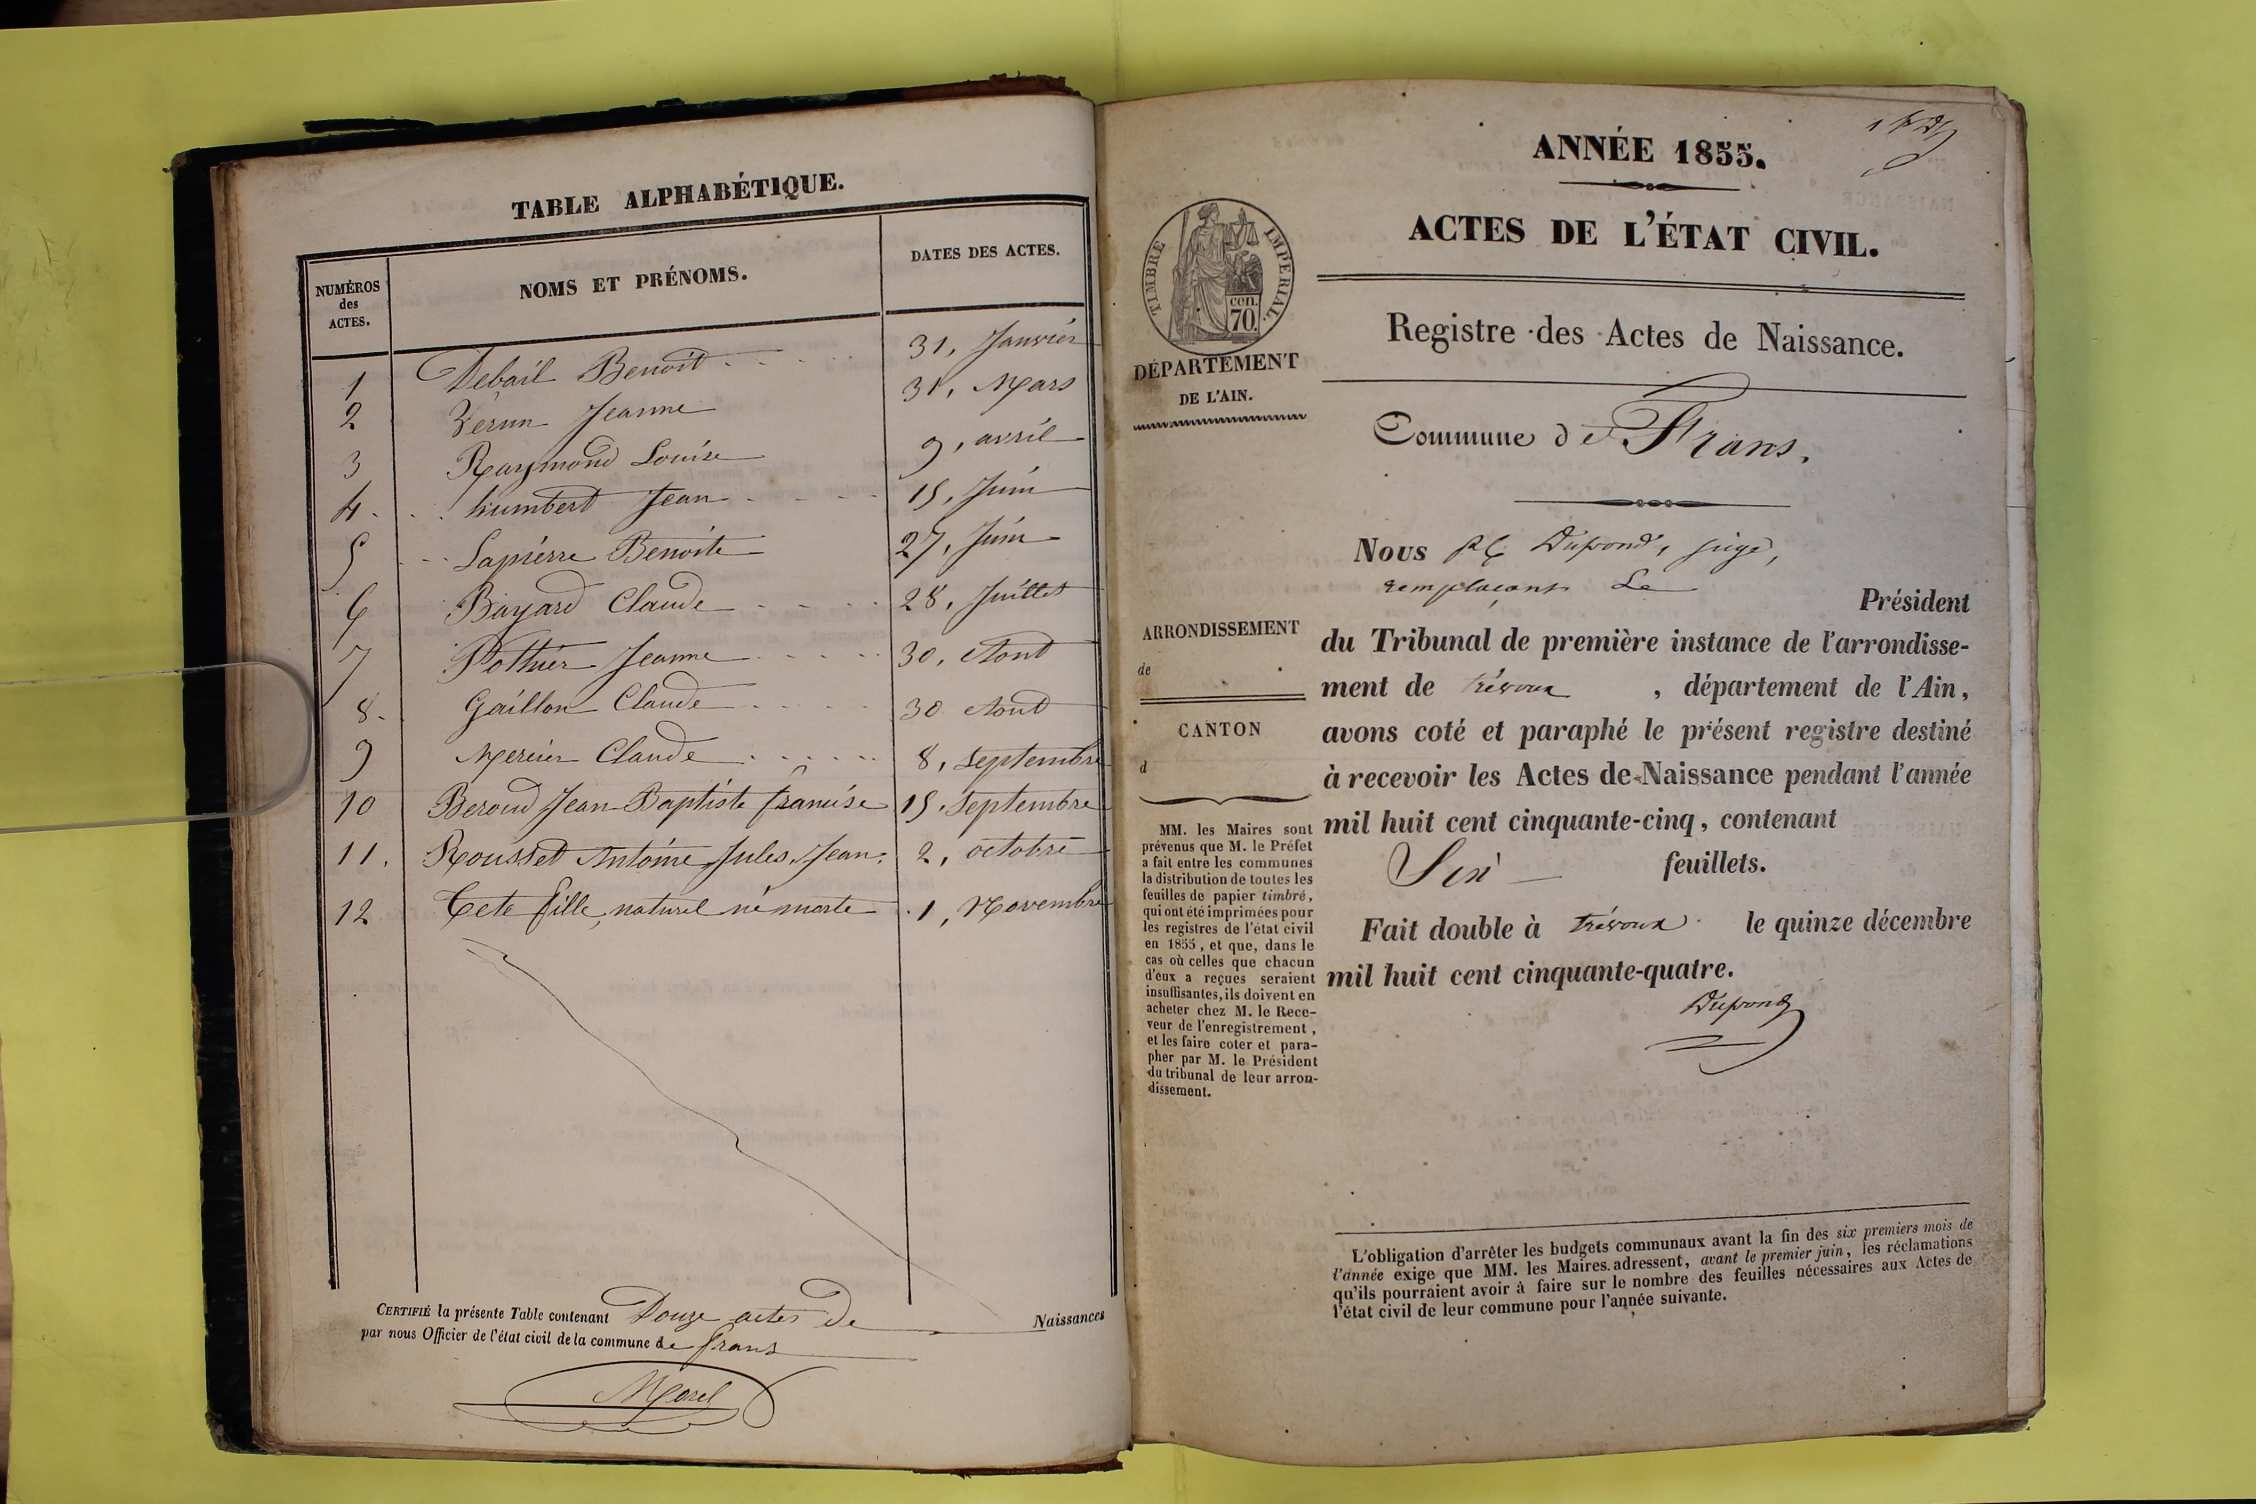 TABLE ALPHABÉTIQUE.
NUMÉROS des ACTES. NOMS ET PRÉNOMS. DATES DES ACTES.
1 Debail Benoit 31, Janvier
2 Jeanne 31, Mars
3 Raymond Louise 9, avril
4 humbert Jean 15, Juin
5 Lapierre Benoite 27, Juin
6 Bayard Claude 28, Juillet
7 Pothier Jeanne 30, Aout
8 Gaillon Claude 30 Aout
9 Mercier Claude 8, Septembre
10 Beroud Jean Baptiste francise 15, Septembre
11. Rousset Antoine Jules Jean. 2, octobre
12 fille, naturel né morte 1, Novembre
CERTIFIÉ la présente Table contenant Douze actes de Naissances
par nous Officier de l'état civil de la commune de frans
Morel
ANNÉE 1855.
ACTES DE L'ÉTAT CIVIL.
TIMBRE IMPÉRIAL.
cen.
70.
DÉPARTEMENT
DE L'AIN.
Registre des Actes de Naissance.
Commune de Frans.
Nous Dupond, juge,
remplaçant Le
Président
ARRONDISSEMENT
de
CANTON
d
du Tribunal de première instance de l'arrondisse-
ment de trévoux , département de l'Ain,
avons coté et paraphé le présent registre destiné
à recevoir les Actes de Naissance pendant l'année
mil huit cent cinquante-cinq, contenant
Six feuillets.
Fait double à trévoux le quinze décembre
mil huit cent cinquante-quatre.
Dupond
MM. les Maires sont
prévenus que M. le Préfet
a fait entre les communes
la distribution de toutes les
feuilles de papier timbré,
qui ont été imprimées pour
les registres de l'état civil
en 1855, et que, dans le
cas où celles que chacun
d'eux a reçues seraient
insuffisantes, ils doivent en
acheter chez M. le Rece-
veur de l'enregistrement,
et les faire coter et para-
pher par M. le Président
du tribunal de leur arron-
dissement.
L'obligation d'arrêter les budgets communaux avant la fin des six premiers mois de
l'année exige que MM. les Maires adressent, avant le premier juin, les réclamations
qu'ils pourraient avoir à faire sur le nombre des feuilles nécessaires aux Actes de
l'état civil de leur commune pour l'année suivante.